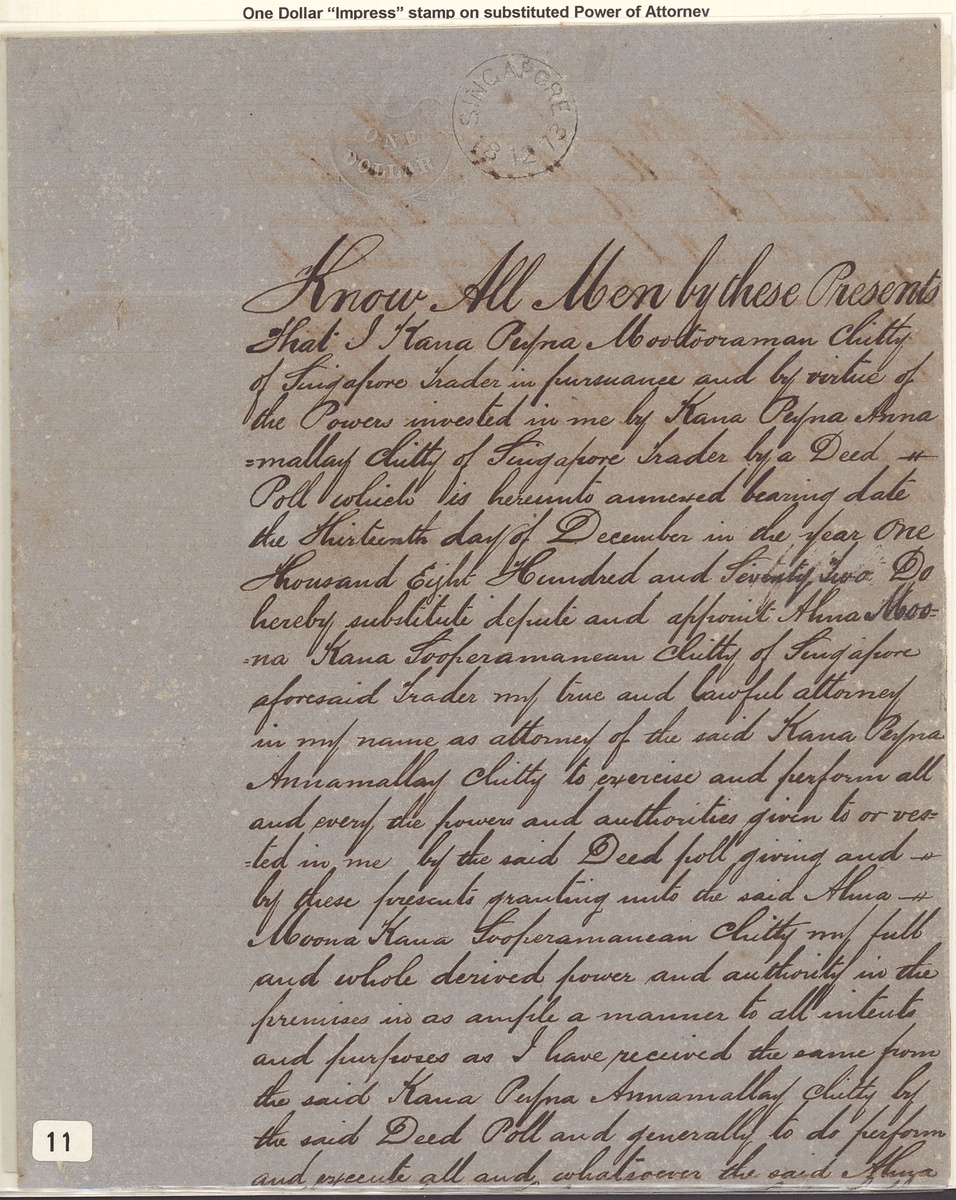 One Dollar “Impress” stamp on substituted Power of Attorney
ONE
DOLLAR
SINGAPORE
8 12 73
Know All Men by these Presents
That I Kana Peyna Mootooraman Chitty
of Singapore Trader in pursuance and by virtue of
the Powers invested in me by Kana Peyna Anna
=mallay Chitty of Singapore Trader by a Deed
Poll which is hereunto annexed bearing date
the Thirteenth day of December in the year One
Thousand Eight Hundred and Seventy Two Do
hereby substitute depute and appoint Ahna Moo=
=na Kana Sooperamanean Chitty of Singapore
aforesaid Trader my true and lawful attorney
in my name as attorney of the said Kana Peyna
Annamallay Chitty to exercise and perform all
and every the powers and authorities given to or ves=
=ted in me by the said Deed poll giving and
by these presents granting unto the said Ahna
Moona Kana Sooperamanean Chitty my full
and whole derived power and authority in the
premises in as ample a manner to all intents
and purposes as I have received the same from
the said Kana Peyna Annamallay Chitty by
the said Deed Poll and generally to do perform
and execute all and whatsoever the said Ahna
11